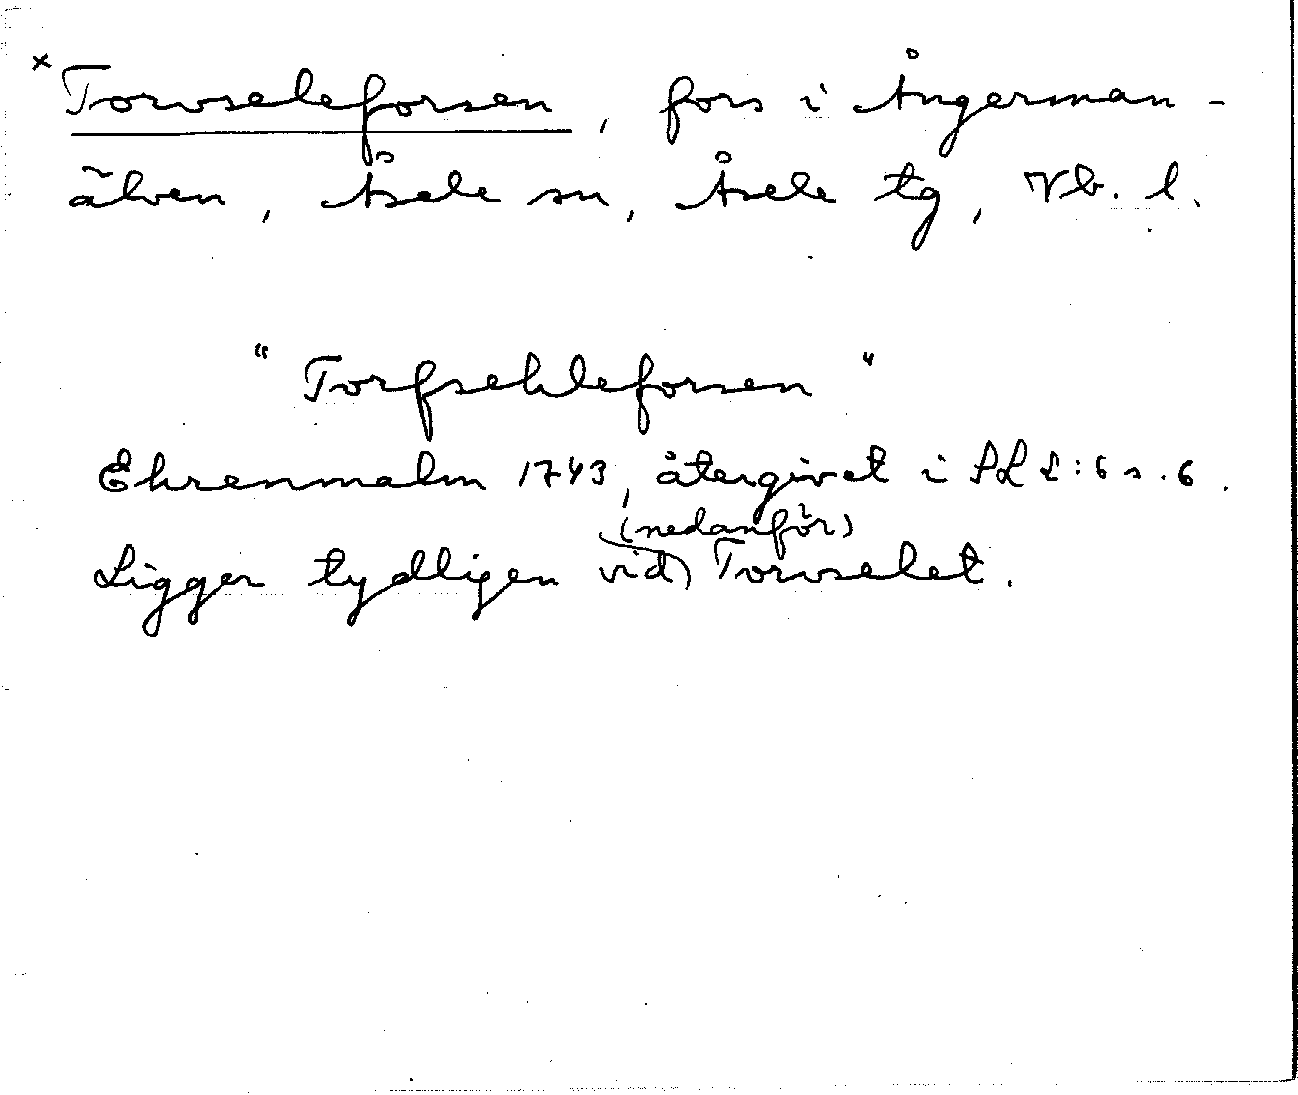 x Torvseleforsen, fors i Ångerman-
älven, Åsele sn, Åsele tg, Vb. l.
"Torfsehleforsen"
Ehrenmalm 1743, återgivet i SL 2:6 s. 6.
(nedanför)
Ligger tydligen vid) Torvselet.